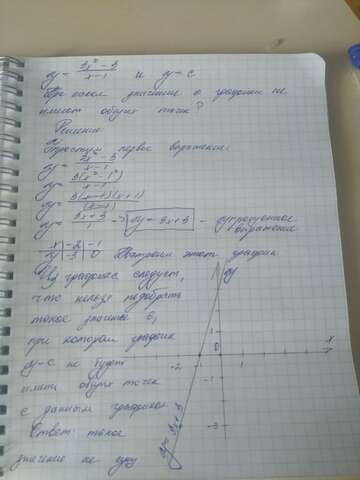 y = 3x² - 3 / x - 1 и y = c
При каком значении c графики не
имеют общих точек?
Решение:
Упростим первое выражение:
y = 3x² - 3 / x - 1
y = 3(x² - 1²) / x - 1
y = 3(x-1)(x+1) / (x-1)
y = 3x+3 / 1 => y = 3x+3 - упрощенное
выражение
x | -2 | -1
y | -3 | 0 Построим этот график
Из графика следует,
что нельзя подобрать
такое значение c,
при котором график
y = c не будет
иметь общих точек
с данным графиком
Ответ: такое
значение не
y
x
1
0
-2
-1
1
-1
-3
y = 3x + 3